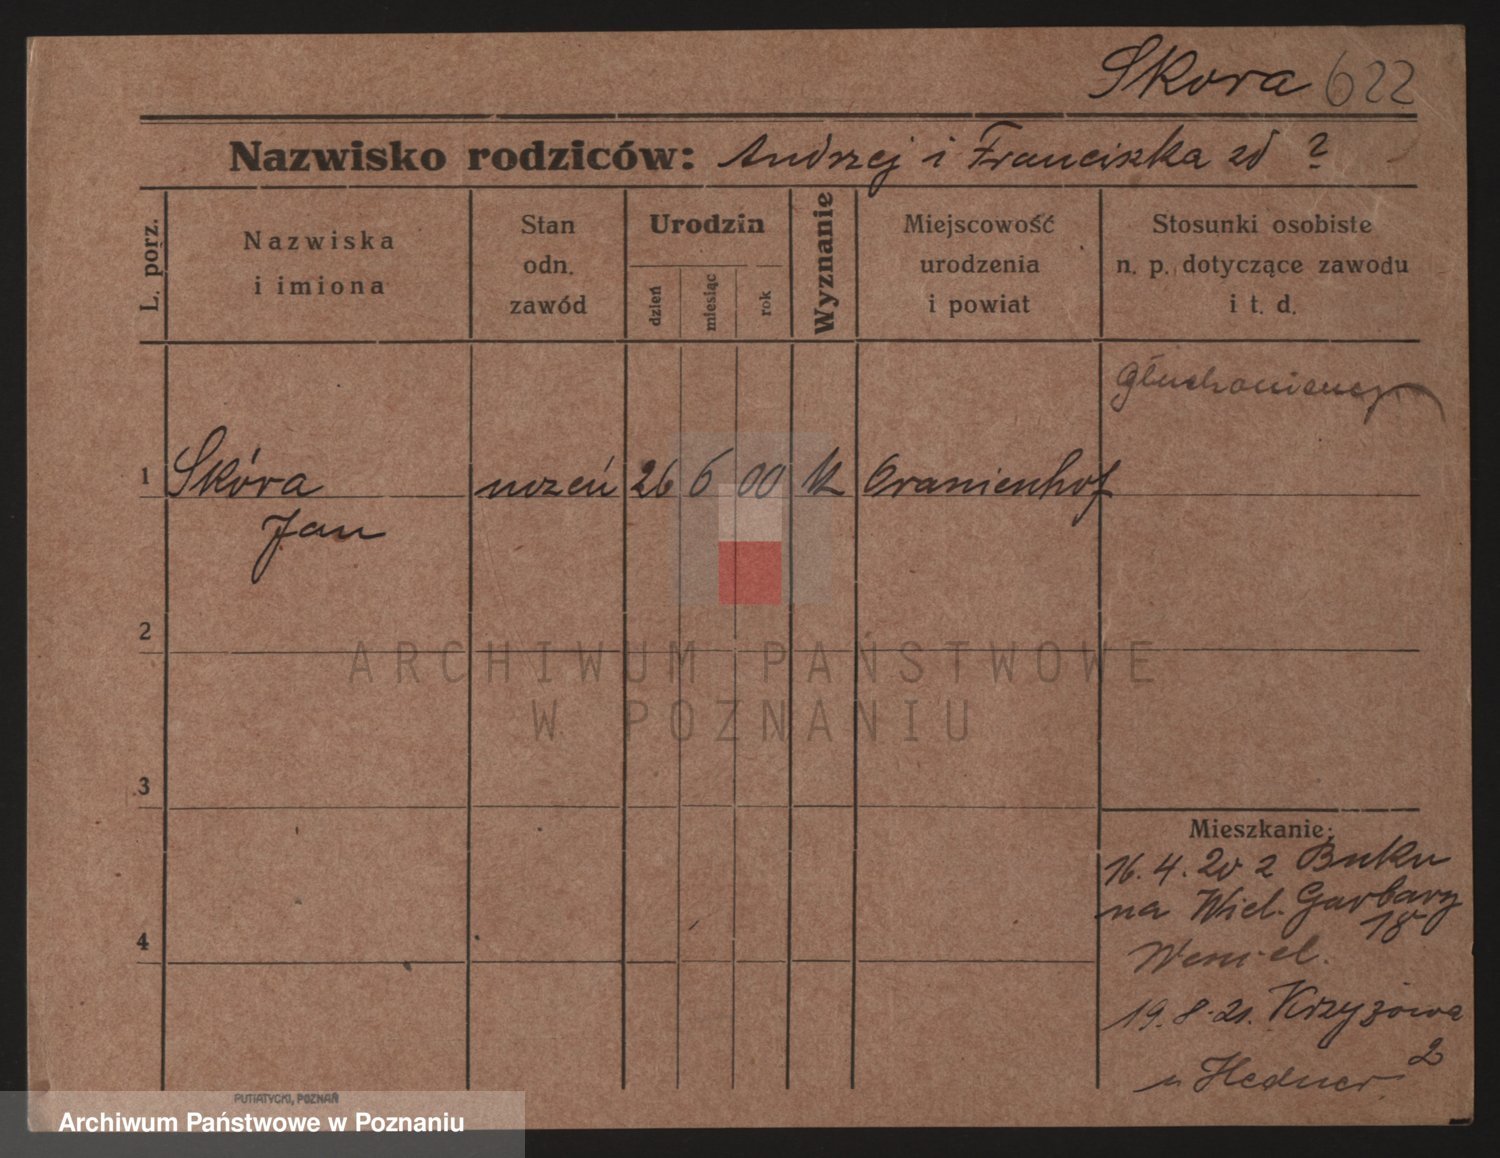 Skora 622
Nazwisko rodziców: Andrzej i Franciszka zd ?
L. porz.
Nazwiska
i imiona
Stan
odn.
zawód
Urodzin
dzień
miesiąc
rok
Wyznanie
Miejscowość
urodzenia
i powiat
Stosunki osobiste
n. p. dotyczące zawodu
i t. d.
Głuchoniemy
1 Skóra uczeń 26 6 00 k Oranienhof
Jan
2
3
4
ARCHIWUM PAŃSTWOWE
W POZNANIU
Mieszkanie:
16. 4. 20 z Buku
na Wiel. Garbary
18
19. 8. 21. Krzyżowa
2
u Hedner
PUTIATYCKI, POZNAŃ
Archiwum Państwowe w Poznaniu